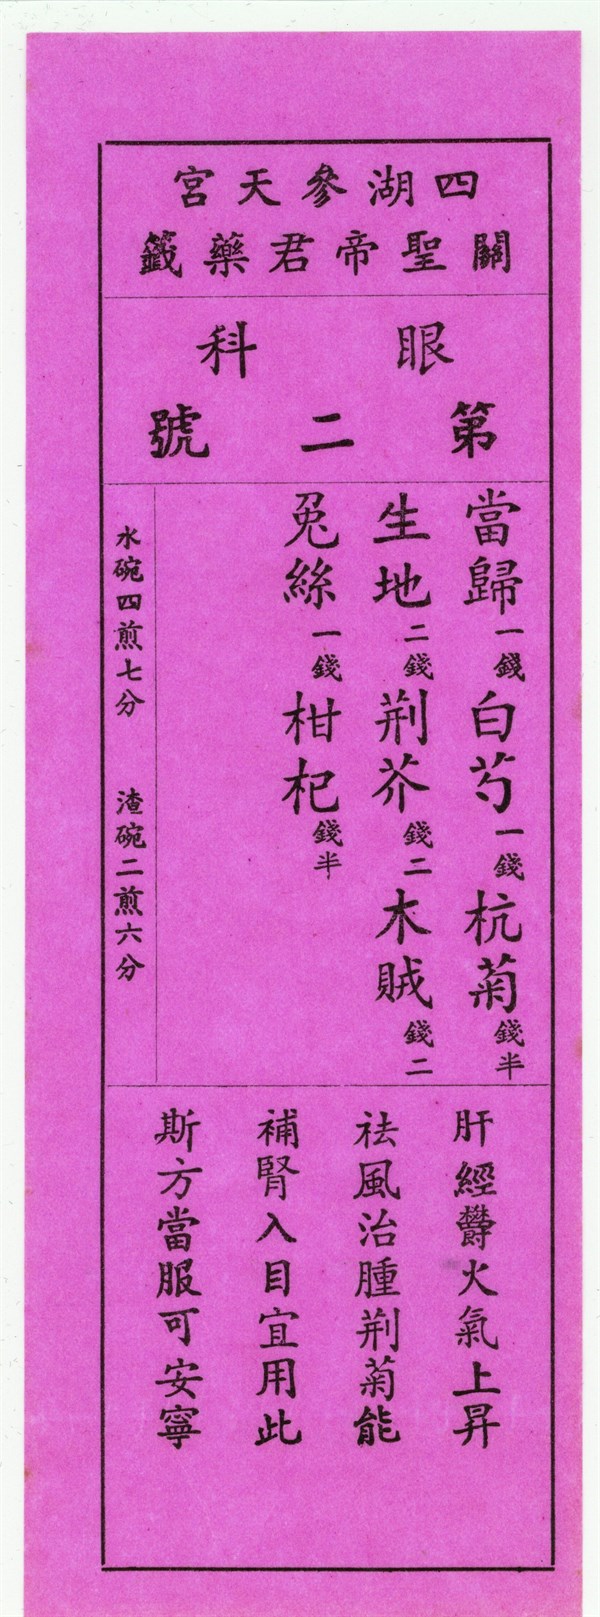 四湖參天宮
關聖帝君藥籤
眼科
第二號
當歸一錢白芍一錢杭菊錢半
生地二錢荆芥錢二木賊錢二
兎絲一錢柑杞錢半
水碗四煎七分 渣碗二煎六分
肝經欝火氣上昇
祛風治腫荆菊能
補腎入目宜用此
斯方當服可安寧